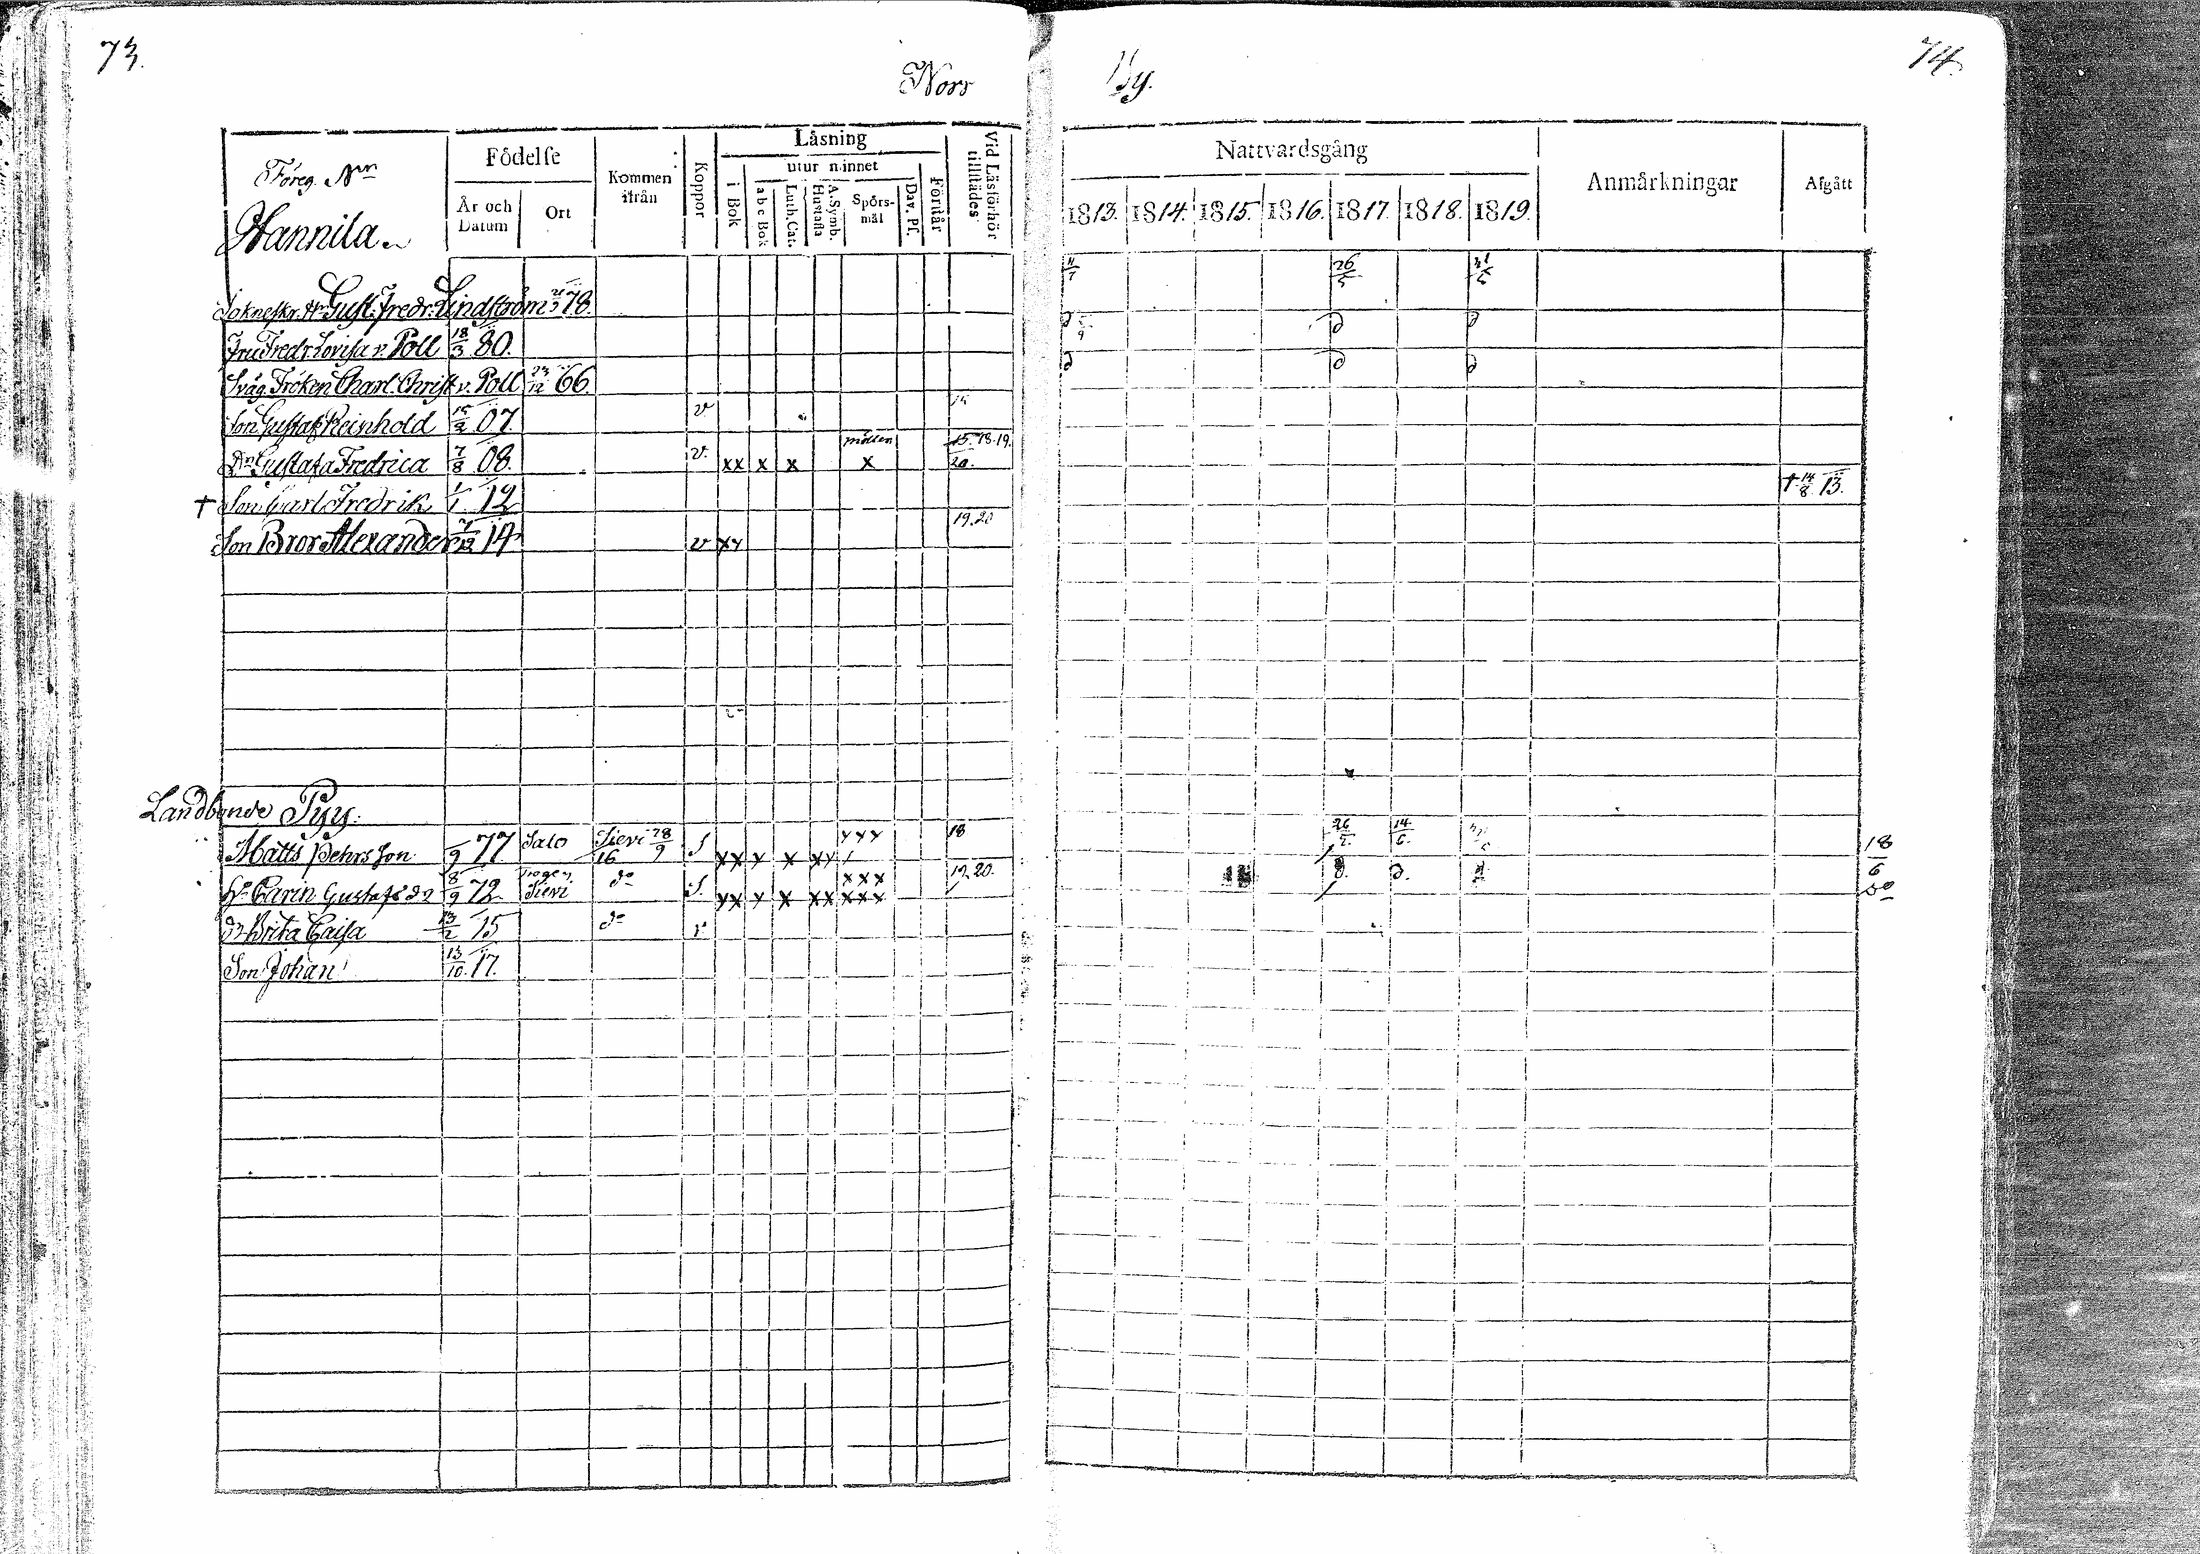 73.
Norr By.
74.
Föreg. Nrn
Hannila
Födelse
År och Datum
Ort
Kommen ifrån
Koppor
Läsning
utur minnet
i Bok
a b c Bok
Luth. Cat.
A. Symb. Hustafla
Spörs-mål
Dav. Ps.
Förstår
Vid Läsförhör tillstädes
Nattvardsgång
1813. 1814. 1815. 1816. 1817. 1818. 1819.
Anmärkningar
Afgått
Gust. Fredr. Lindström 78. 26/5
Fru Fredr. Lovisa v. Poll 18/3 80. d d
Sväg. Fröken Charl. Christ v. Poll 66. d d d
Son Gustaf Reinhold 07. v
Dr Gustafa Fredrica 7/8 08. v. xx x x x 15. 18. 19. 20.
† Son Carl Fredrik 1/1 12 † 14/8 13.
Son Bror Alexander 14 v xx 19. 20
Landbonde Pyy.
Matts Pehrs Son /9 77 Salo Sievi 28/9 16 S xx x x xx xxx 18 26/5 14/6 18/6
Hu Carin Gustafs dr 8/9 72 Sievi do S. xx x x xx xxx xxx 19. 20. d. d. do
dr Brita Caisa 13/2 15 do v
Son Johan 13/10 17.